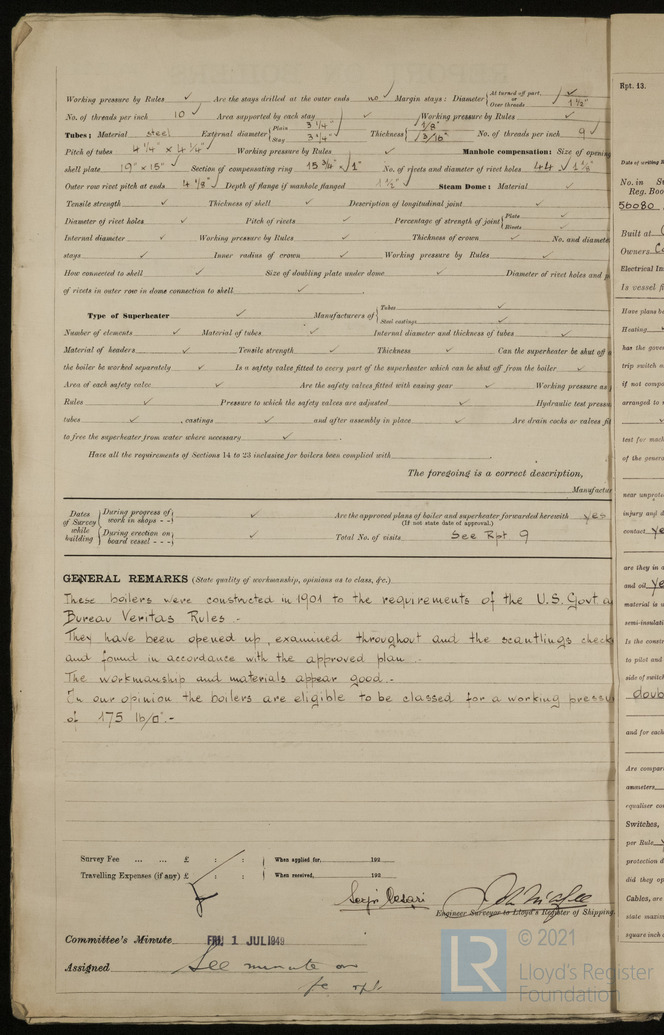 Working pressure by Rules ✓ Are the stays drilled at the outer ends no Margin stays: Diameter { At turned off part, or Over threads ✓ 1½"
No. of threads per inch 10 ✓ Area supported by each stay ✓ Working pressure by Rules ✓
Tubes: Material steel External diameter { Plain 3¼" Stay 3¼" ✓ Thickness { 1/8" 3/16" ✓ No. of threads per inch 9 ✓
Pitch of tubes 4¼" x 4¼" ✓ Working pressure by Rules ✓ Manhole compensation: Size of opening
shell plate 19" x 15" ✓ Section of compensating ring 15¾" ✓ 1" No. of rivets and diameter of rivet holes 44 ✓
Outer row rivet pitch at ends 4⅛" ✓ Depth of flange if manhole flanged 1½" ✓ Steam Dome: Material ✓
Tensile strength ✓ Thickness of shell ✓ Description of longitudinal joint ✓
Diameter of rivet holes ✓ Pitch of rivets ✓ Percentage of strength of joint { Plate ✓ Rivets ✓
Internal diameter ✓ Working pressure by Rules ✓ Thickness of crown ✓ No. and diamete
stays ✓ Inner radius of crown ✓ Working pressure by Rules ✓
How connected to shell ✓ Size of doubling plate under dome ✓ Diameter of rivet holes and p
of rivets in outer row in dome connection to shell ✓
Type of Superheater ✓ Manufacturers of { Tubes ✓ Steel castings ✓
Number of elements ✓ Material of tubes ✓ Internal diameter and thickness of tubes ✓
Material of headers ✓ Tensile strength ✓ Thickness ✓ Can the superheater be shut off a
the boiler be worked separately ✓ Is a safety valve fitted to every part of the superheater which can be shut off from the boiler ✓
Area of each safety valve ✓ Are the safety valves fitted with easing gear ✓ Working pressure as
Rules ✓ Pressure to which the safety valves are adjusted ✓ Hydraulic test pressu
tubes ✓ , castings ✓ and after assembly in place ✓ Are drain cocks or valves fit
to free the superheater from water where necessary ✓
Have all the requirements of Sections 14 to 23 inclusive for boilers been complied with
The foregoing is a correct description,
Manufactur
Dates of Survey while building { During progress of work in shops - - } ✓ Are the approved plans of boiler and superheater forwarded herewith yes
(If not state date of approval.)
{ During erection on board vessel - - - } ✓ Total No. of visits See Rpt 9
GENERAL REMARKS (State quality of workmanship, opinions as to class, &c.)
These boilers were constructed in 1901 to the requirements of the U.S. Govt a
Bureau Veritas Rules .-
They have been opened up, examined throughout and the scantlings check
and found in accordance with the approved plan .
The workmanship and materials appear good.-
In our opinion the boilers are eligible to be classed for a working pressu
of 175 lb/□".-
Survey Fee ... ... £ : : When applied for, 192
Travelling Expenses (if any) £ : : When received, 192
Engineer Surveyor to Lloyd's Register of Shipping
Committee's Minute FRI 1 JUL 1949
Assigned See minute on
fe rpt
Rpt. 13.
Date of writing R
No. in S
Reg. Boo
56080
Built at
Owners
Electrical In
Is vessel fi
Have plans
Heating
has the gove
trip switch o
if not compo
arranged to
test for mach
of the genera
near unprote
injury and d
contact ye
are they in a
and oil ye
material is u
semi-insulati
Is the constr
to pilot and
side of switch
doub
and for each
Are compar
ammeters
equaliser co
Switches,
per Rule
protection d
did they op
Cables, are
state maxim
square inch o
LR © 2021
Lloyd's Register
Foundation